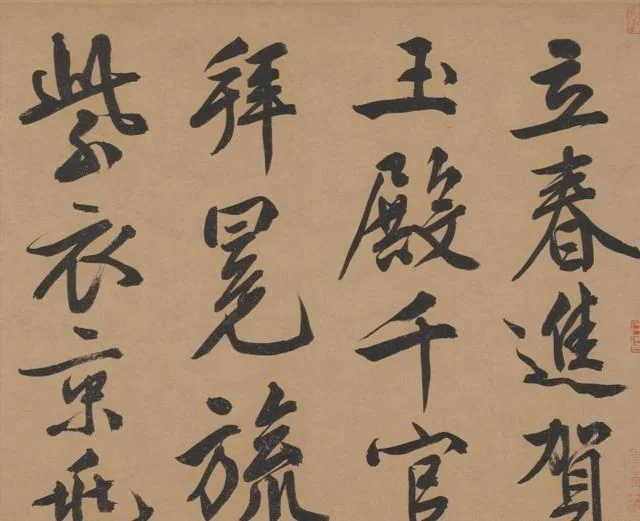 立春進賀
玉殿千官
拜冕旒
紫衣京兆